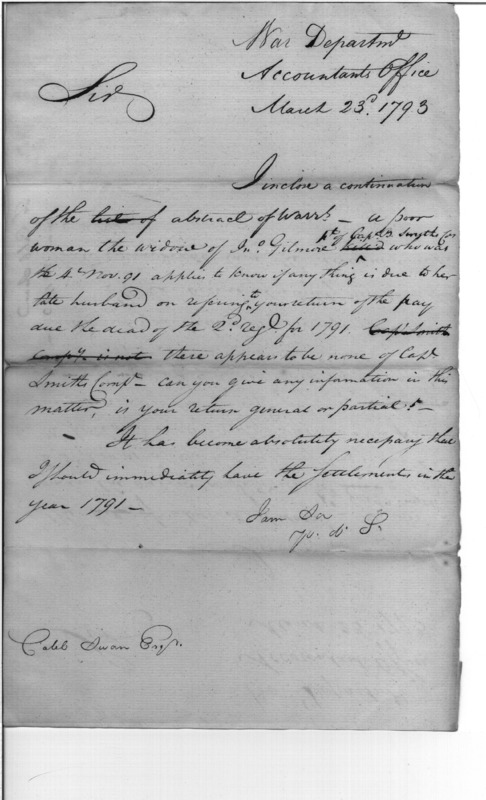 War Departmt
Accountants Office
Sir
March 23d. 1793
I inclose a continuation
of the list of abstract of Warrts – a poor
woman the widow of Jno. Gilmore pt of Capt. Smyths Co killed who was
the 4th Nov. 91 applies to know if any thing is due to her
late husband on refering to your return of the pay
due the dead of the 2d. Regt for 1791. Capt Smith
Compy. is not there appears to be none of Capt
Smiths Compy – can you give any information in this
matter, is your return general or partial? –
– It has become absolutely necessary that
I should immediately have the settlements in the
year 1791 –
I am Sir
yr. ob. S.
Caleb Swan Esqr.